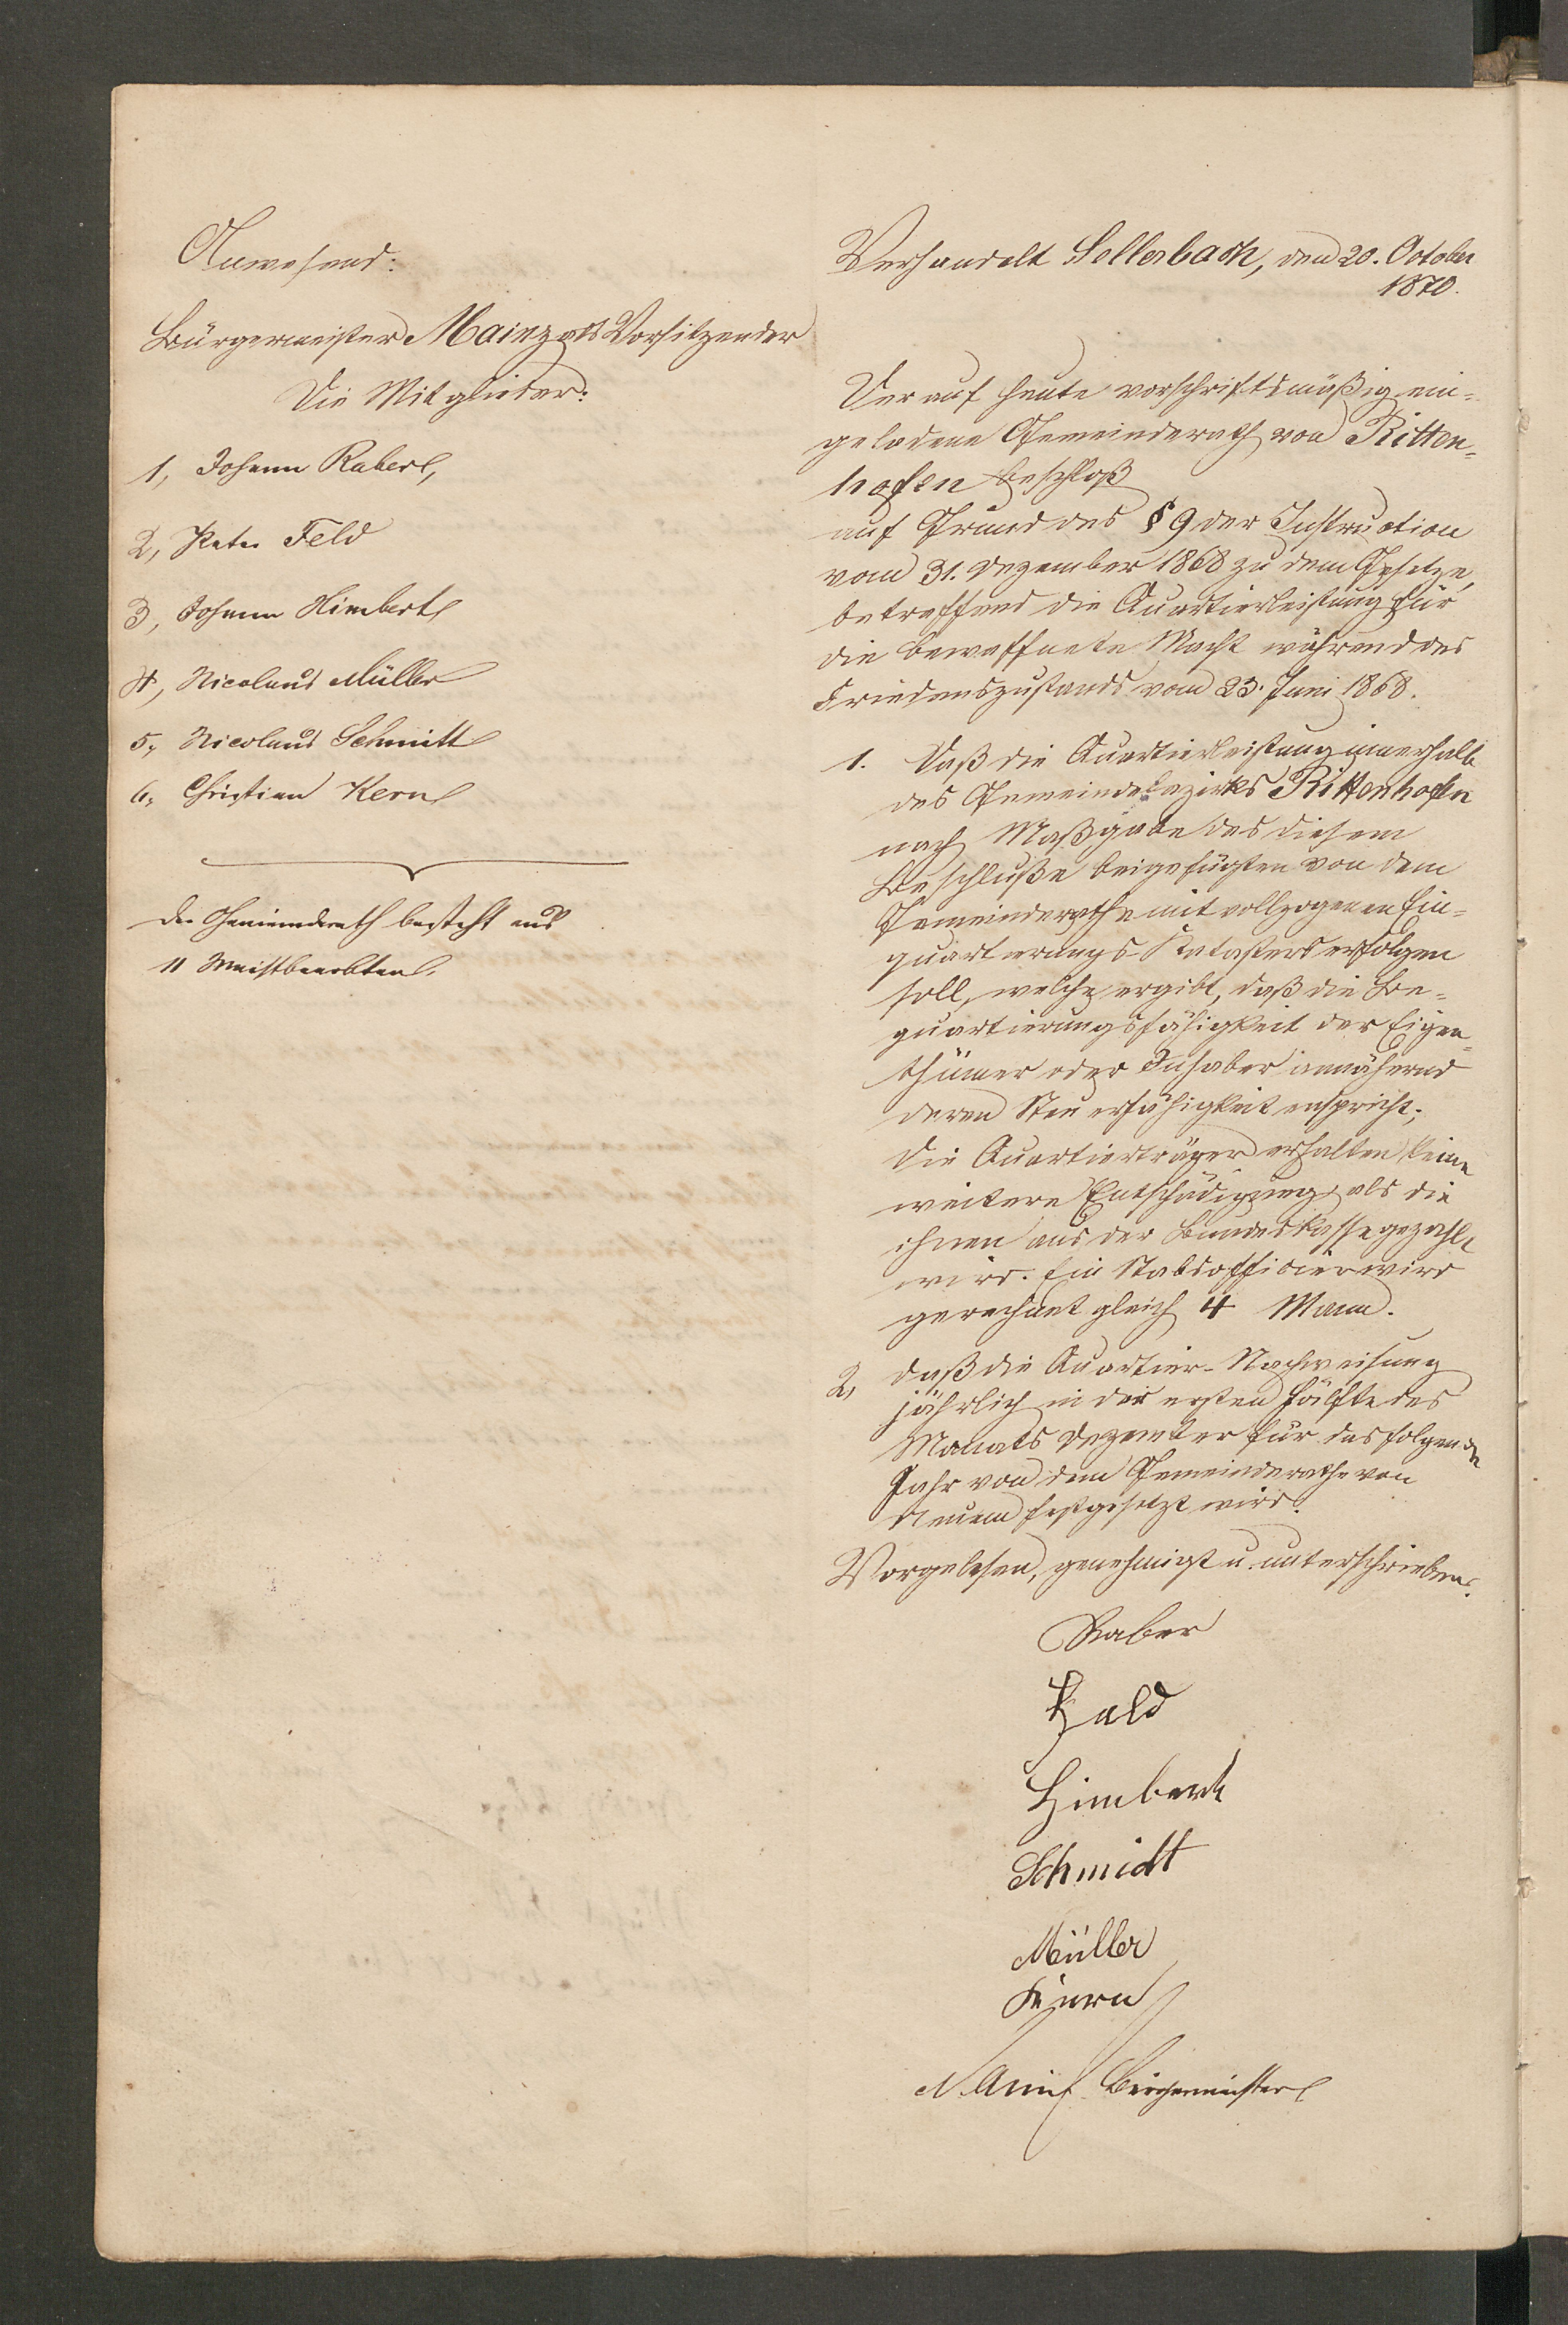 Anwesend:
Bürgermeister Mainz als Vorsitzender
Die Mitglieder:
1, Johann Raber,
2, Peter Feld
3, Johann Himbert
4, Nicolaus Müller
5, Nicolaus Schmitt
6, Christian Kern
Der Gemeinderath besteht aus
11 Meistbeerbten.
Verhandelt Sellerbach, den 20. October
1870.
Der auf heute vorschriftsmäßig ein-
geladene Gemeinderath von Ritten-
hofen beschloß
auf Grund des § 9 der Instruction
vom 31. Dezember 1868 zu dem Gesetze,
betreffend die Quartierleistung für
die bewaffnete Macht während des
Friedenszustands vom 25. Juni 1868.
1. Daß die Quartierleistung innerhalb
des Gemeindebezirks Rittenhofen
nach Maßgabe des diesem
Beschluße beigefügten von dem
Gemeinderathe mit vollzogenen Ein-
quartierungs-Katasters erfolgen
soll, welche ergibt, daß die Be-
quartierungsfähigkeit der Eigen-
thümer oder Inhaber annähernd
deren Steuerfähigkeit entspricht;
die Quartierträger erhalten keine
weitere Entschädigung als die
ihnen aus der Bundeskasse gezahlt
wird. Ein Stabsoffizier wird
gerechnet gleich 4 Mann.
2, daß die Quartier-Nachweisung
jährlich in der ersten Hälfte des
Monats Dezember für das folgende
Jahr von dem Gemeinderathe von
Neuem festgesetzt wird.
Vorgelesen, genehmigt u. unterschrieben.
Raber
Feld
Himbert
Schmidt
Müller
Kern
Bürgermeister